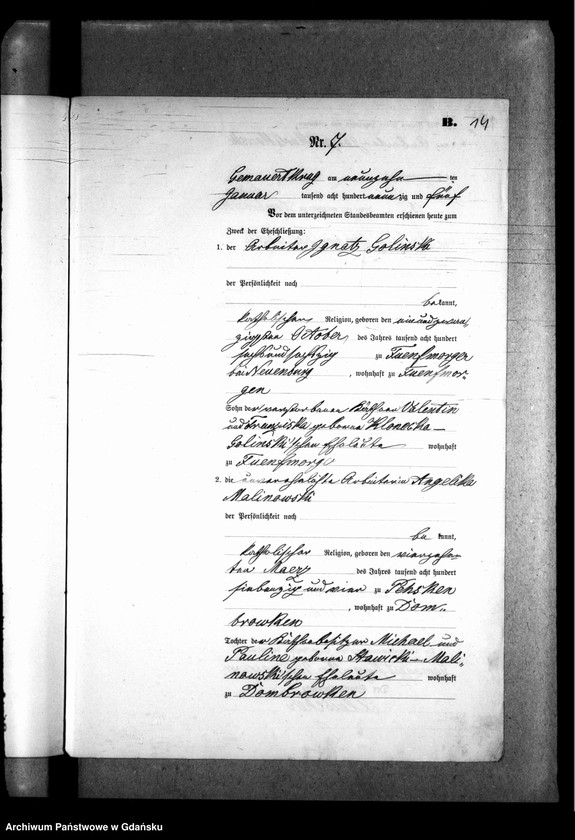 B. 14
Nr. 7.
Gemauert Krug am neunzehn ten
Januar tausend acht hundert neun zig und fünf
Vor dem unterzeichneten Standesbeamten erschienen heute zum
Zweck der Eheschließung:
1. der Arbeiter Ignatz Golinski
der Persönlichkeit nach
be kannt,
katholischer Religion, geboren den einundzwan
zigsten October des Jahres tausend acht hundert
sechsundsechszig zu Fuenfmorgen
bei Neuenburg, wohnhaft zu Fuenfmor-
gen
Sohn der verstorbenen Käthner Valentin
und Franziska geborene Klonecka-
Golinski'schen Eheleute wohnhaft
zu Fuenfmorg
2. die unverehelichte Arbeiterin Angelika
Malinowski
der Persönlichkeit nach
be kannt,
katholischer Religion, geboren den vierzehn-
ten Maerz des Jahres tausend acht hundert
siebenzig und vier zu Pehsken
, wohnhaft zu Dom-
browken
Tochter der Käthnerbesitzer Michael und
Pauline geborene Stawicki-Mali-
nowski'schen Eheleute wohnhaft
zu Dombrowken
Archiwum Państwowe w Gdańsku